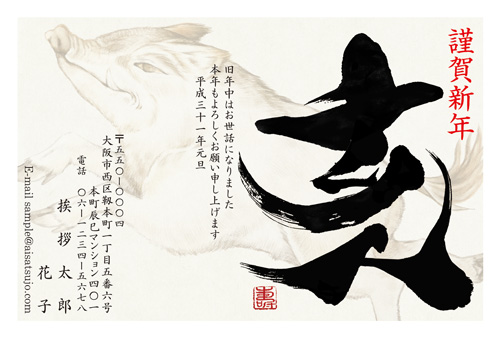 謹賀新年
亥
旧年中はお世話になりました
本年もよろしくお願い申し上げます
平成三十一年元旦
〒五五〇-〇〇〇四
大阪市西区靱本町一丁目五番六号
本町辰巳マンション四〇一
電話 〇六-一二三四-五六七八
挨拶太郎
花子
E-mail sample@aisatsujo.com